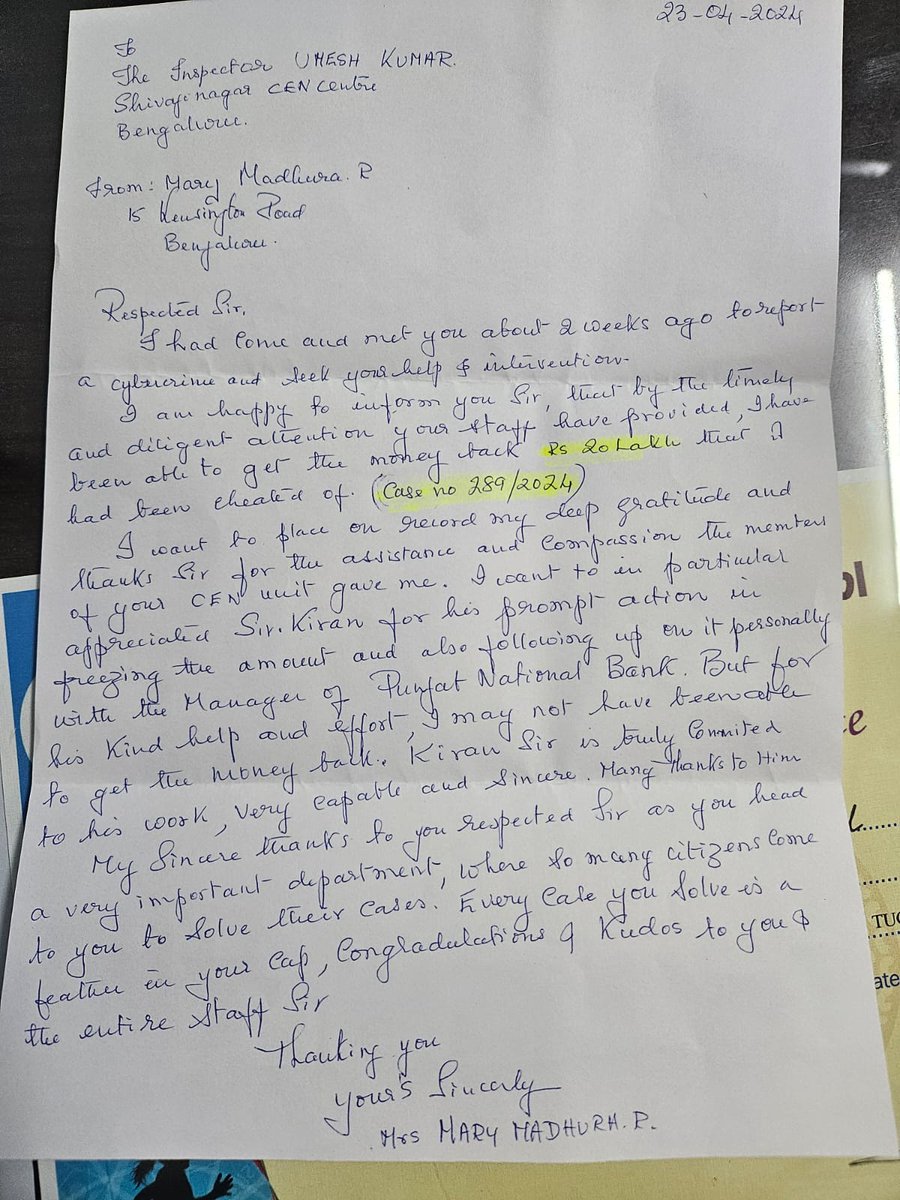 23-04-2024
To
The Inspector UMESH KUMAR.
Shivajinagar CEN Centre
Bengaluru.
From: Mary Madhura. R
15 Kensington Road
Bengaluru.
Respected Sir,
I had come and met you about 2 weeks ago to report
a cybercrime and seek your help & intervention.
I am happy to inform you Sir, that by the timely
and diligent attention your staff have provided, I have
been able to get the money back Rs 20 Lakh that I
had been cheated of. (Case no 289/2024)
I want to place on record my deep gratitude and
thanks Sir for the assistance and compassion the members
of your CEN unit gave me. I want to in particular
appreciated Sir. Kiran for his prompt action in
freezing the amount and also following up on it personally
with the Manager of Punjat National Bank. But for
his kind help and effort, I may not have been able
to get the money back. Kiran Sir is truly Commited
to his work, very capable and sincere. Many thanks to Him
My Sincere thanks to you respected Sir as you head
a very important department, where so many citizens come
to you to solve their cases. Every case you solve is a
feather in your cap, Congradulations & Kudos to you &
the entire staff Sir
Thanking you
Your's Sincerly
Mrs MARY MADHURA. R.
ol
ce
TUC
ate